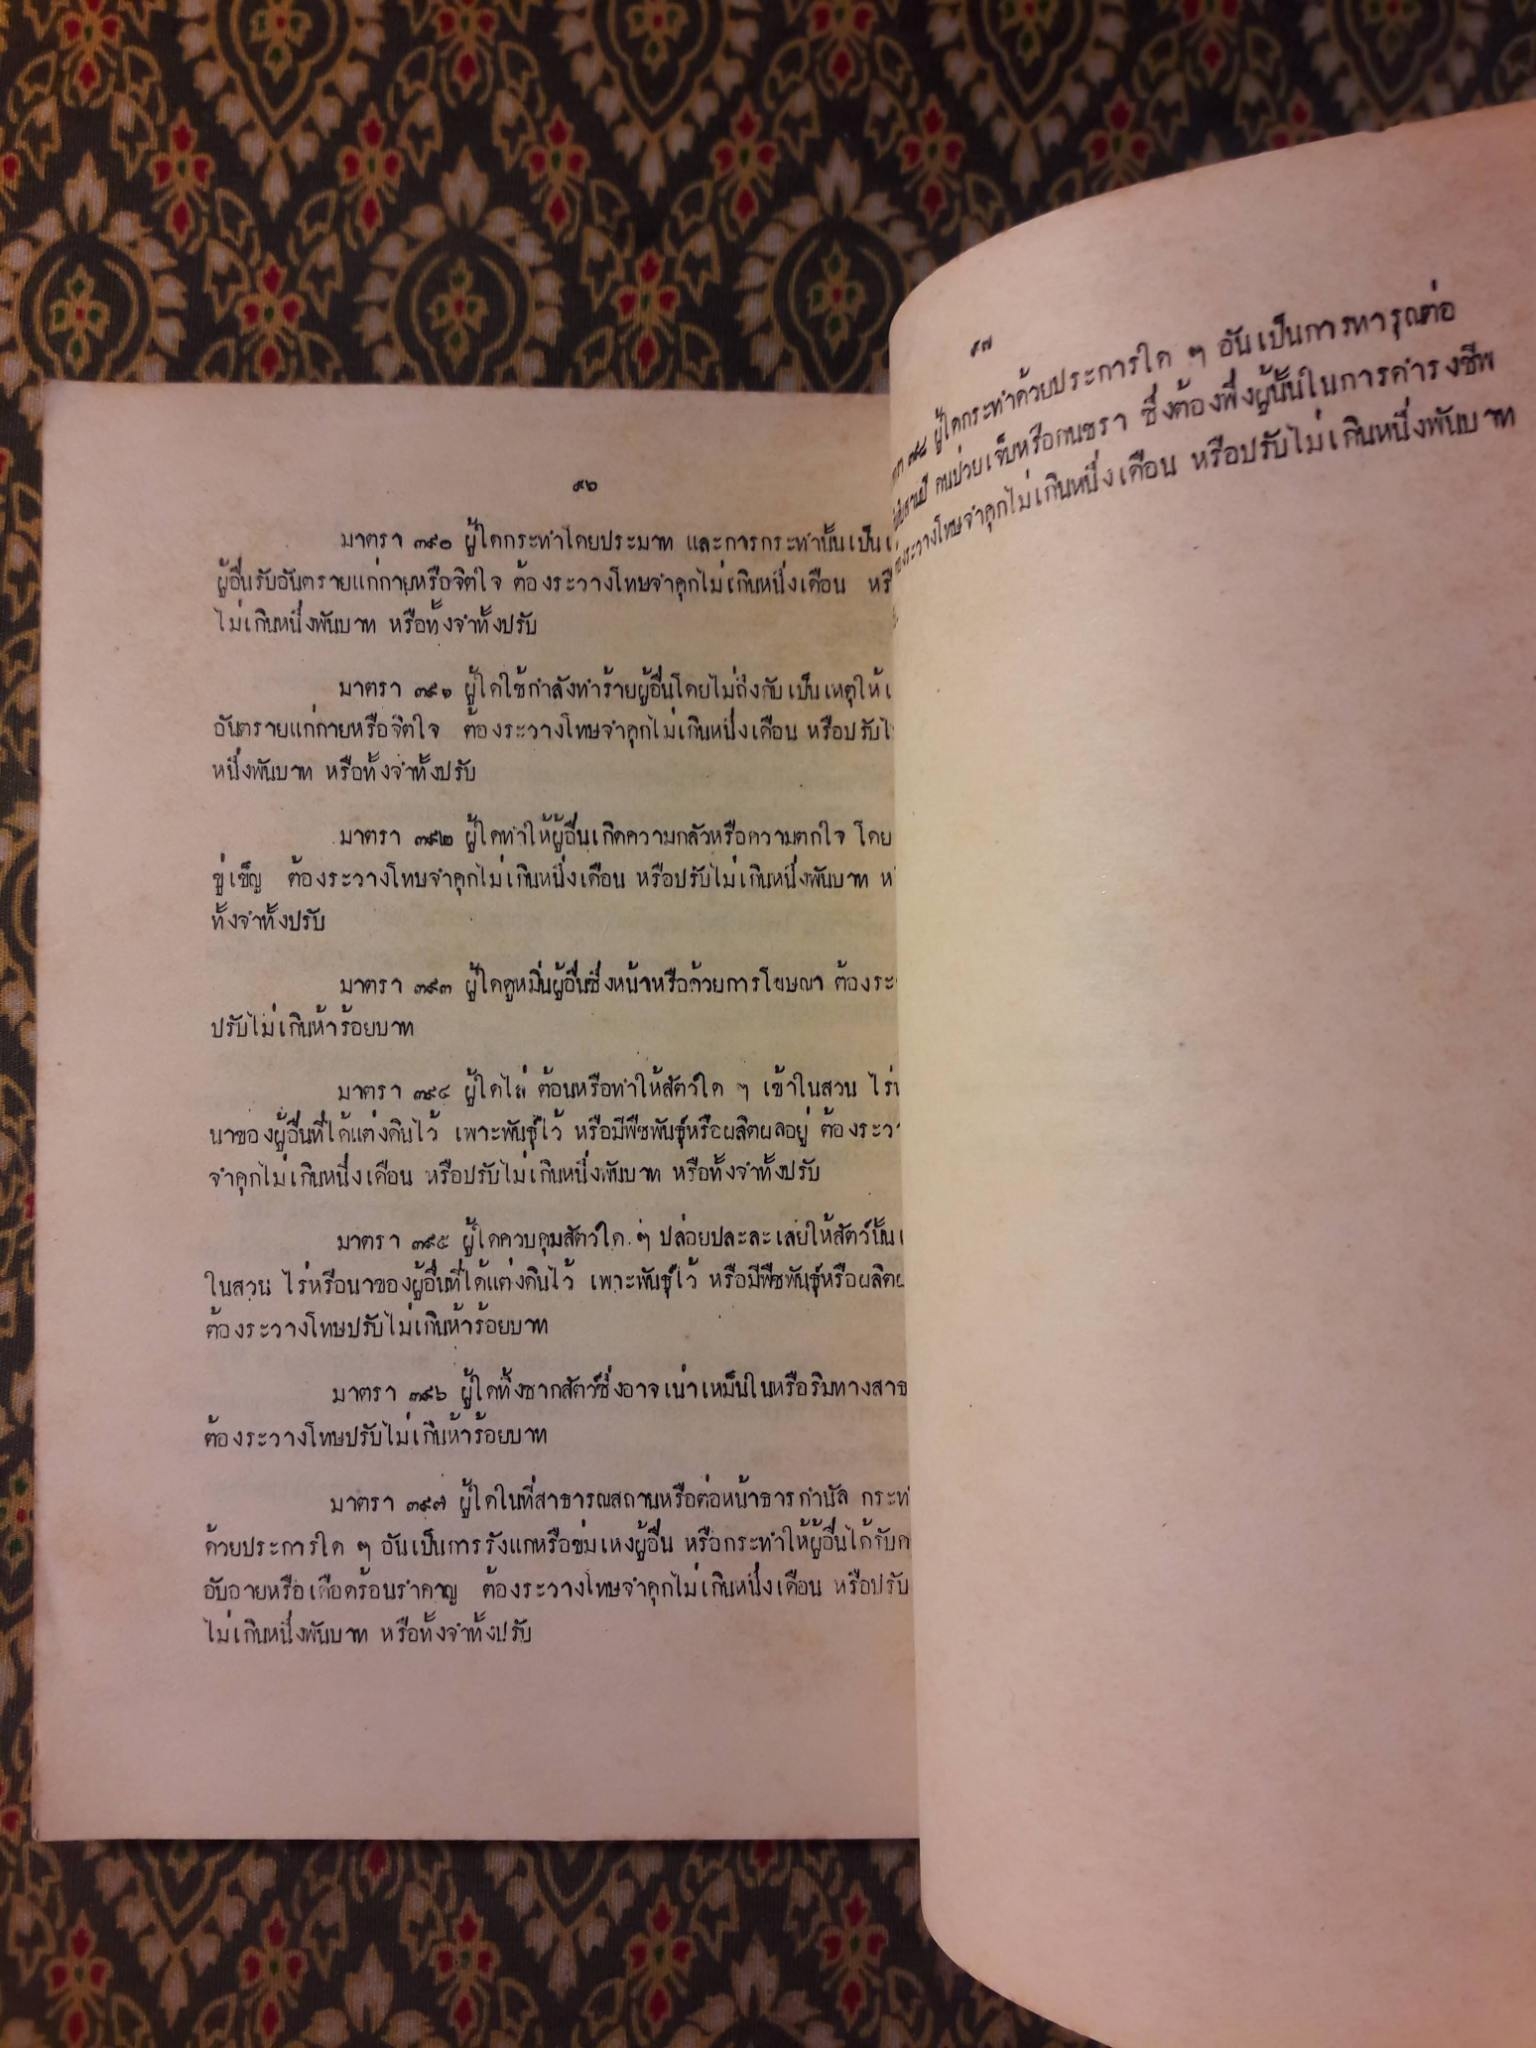 ๙๖
มาตรา ๓๙๐ ผู้ใดกระทำโดยประมาท และการกระทำนั้นเป็น
ผู้อื่นรับอันตรายแก่กายหรือจิตใจ ต้องระวางโทษจำคุกไม่เกินหนึ่งเดือน
ไม่เกินหนึ่งพันบาท หรือทั้งจำทั้งปรับ
มาตรา ๓๙๑ ผู้ใดใช้กำลังทำร้ายผู้อื่นโดยไม่ถึงกับเป็นเหตุให้
อันตรายแก่กายหรือจิตใจ ต้องระวางโทษจำคุกไม่เกินหนึ่งเดือน หรือปรับ
หนึ่งพันบาท หรือทั้งจำทั้งปรับ
มาตรา ๓๙๒ ผู้ใดทำให้ผู้อื่นเกิดความกลัวหรือความตกใจ โดย
ขู่เข็ญ ต้องระวางโทษจำคุกไม่เกินหนึ่งเดือน หรือปรับไม่เกินหนึ่งพันบาท
ทั้งจำทั้งปรับ
มาตรา ๓๙๓ ผู้ใดดูหมิ่นผู้อื่นซึ่งหน้าหรือด้วยการโฆษณา ต้องระ
ปรับไม่เกินห้าร้อยบาท
มาตรา ๓๙๔ ผู้ใดไล่ ต้อนหรือทำให้สัตว์ใด ๆ เข้าในสวน ไร่
นาของผู้อื่นที่ได้แต่งดินไว้ เพาะพันธุ์ไว้ หรือมีพืชพันธุ์หรือผลิตผลอยู่ ต้องระวา
จำคุกไม่เกินหนึ่งเดือน หรือปรับไม่เกินหนึ่งพันบาท หรือทั้งจำทั้งปรับ
มาตรา ๓๙๕ ผู้ใดควบคุมสัตว์ใด ๆ ปล่อยปละละเลยให้สัตว์นั้น
ในสวน ไร่หรือนาของผู้อื่นที่ได้แต่งดินไว้ เพาะพันธุ์ไว้ หรือมีพืชพันธุ์หรือผลิต
ต้องระวางโทษปรับไม่เกินห้าร้อยบาท
มาตรา ๓๙๖ ผู้ใดทิ้งซากสัตว์ซึ่งอาจเน่าเหม็นในหรือริมทางสาธ
ต้องระวางโทษปรับไม่เกินห้าร้อยบาท
มาตรา ๓๙๗ ผู้ใดในที่สาธารณสถานหรือต่อหน้าธารกำนัล กระทำ
ด้วยประการใด ๆ อันเป็นการรังแกหรือข่มเหงผู้อื่น หรือกระทำให้ผู้อื่นได้รับ
อับอายหรือเดือดร้อนรำคาญ ต้องระวางโทษจำคุกไม่เกินหนึ่งเดือน หรือปรับ
ไม่เกินหนึ่งพันบาท หรือทั้งจำทั้งปรับ
๙๗
๓๙๘ ผู้ใดกระทำด้วยประการใด ๆ อันเป็นการทารุณต่อ
คนป่วยเจ็บหรือคนชรา ซึ่งต้องพึ่งผู้นั้นในการดำรงชีพ
ระวางโทษจำคุกไม่เกินหนึ่งเดือน หรือปรับไม่เกินหนึ่งพันบาท